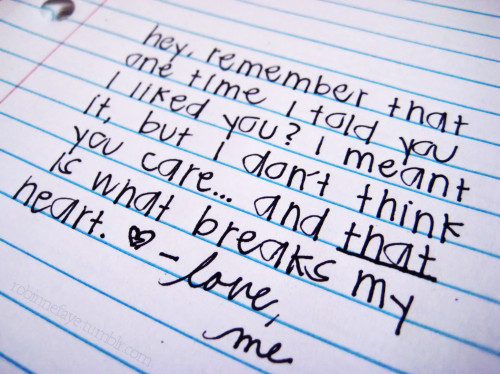 hey, remember that
one time I told you
I liked you? I meant
it, but I don't think
you care... and that
is what breaks my
heart. ♡ - love,
me
robinnefaye.tumblr.com